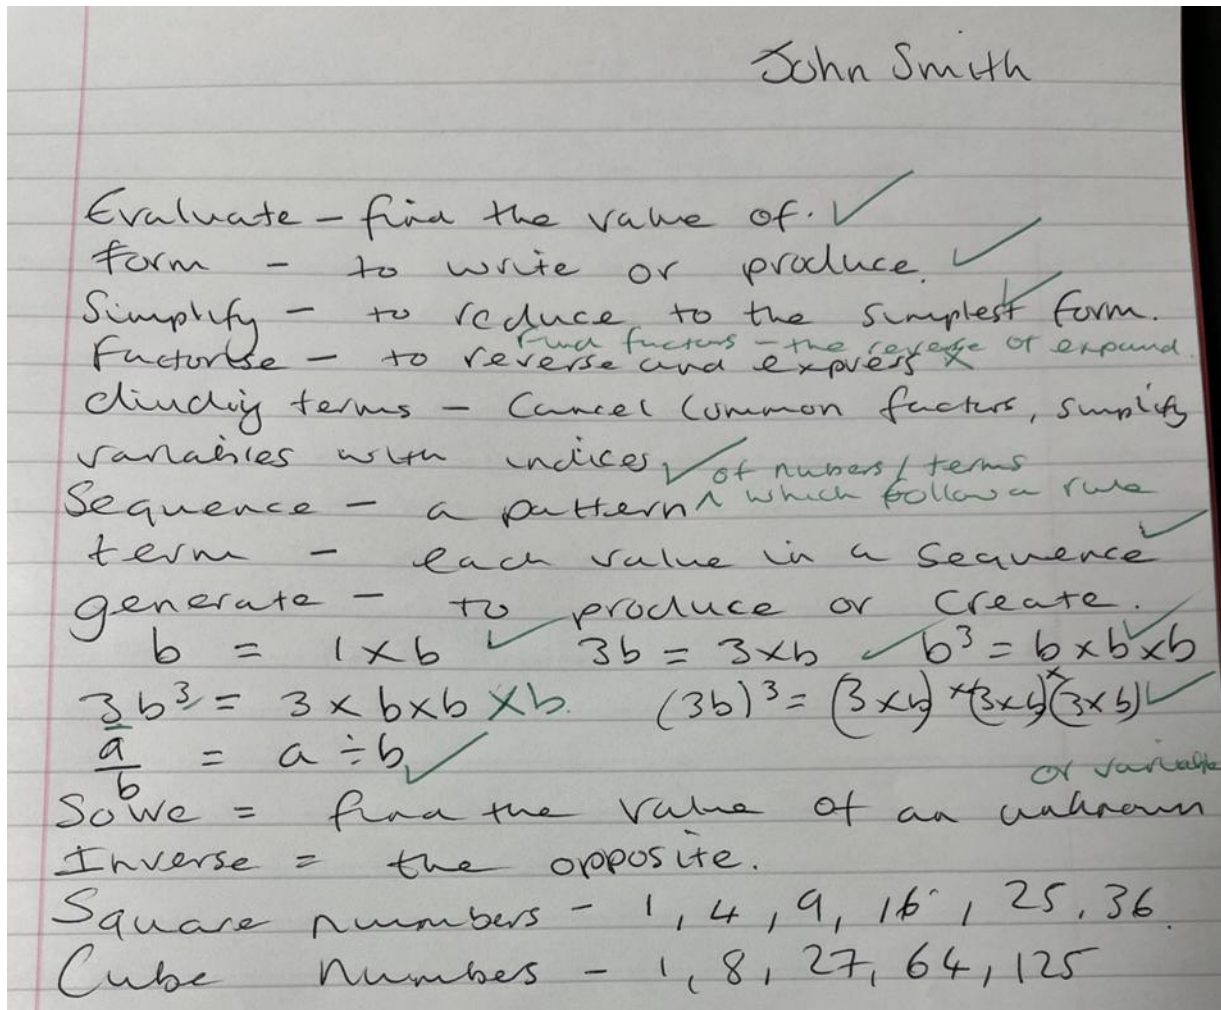 John Smith
Evaluate - find the value of. ✓
form - to write or produce. ✓
Simplify - to reduce to the simplest form. ✓
find factors - the reverse of expand.
Factorise - to reverse and express ×
dividing terms - Cancel common factors, simplify
variables with indices ✓
of nubers / terms
Sequence - a pattern ^ which follow a rule
term - each value in a sequence ✓
generate - to produce or create.
b = 1 × b ✓ 3b = 3×b ✓ b³ = b × b × b ✓
3b³ = 3 × b×b ×b. (3b)³ = (3 × b) × (3×b) × (3 × b) ✓
a/b = a ÷ b ✓
or variable
Solve = find the value of an unknown
Inverse = the opposite.
Square numbers - 1, 4, 9, 16, 25, 36.
Cube numbers - 1, 8, 27, 64, 125